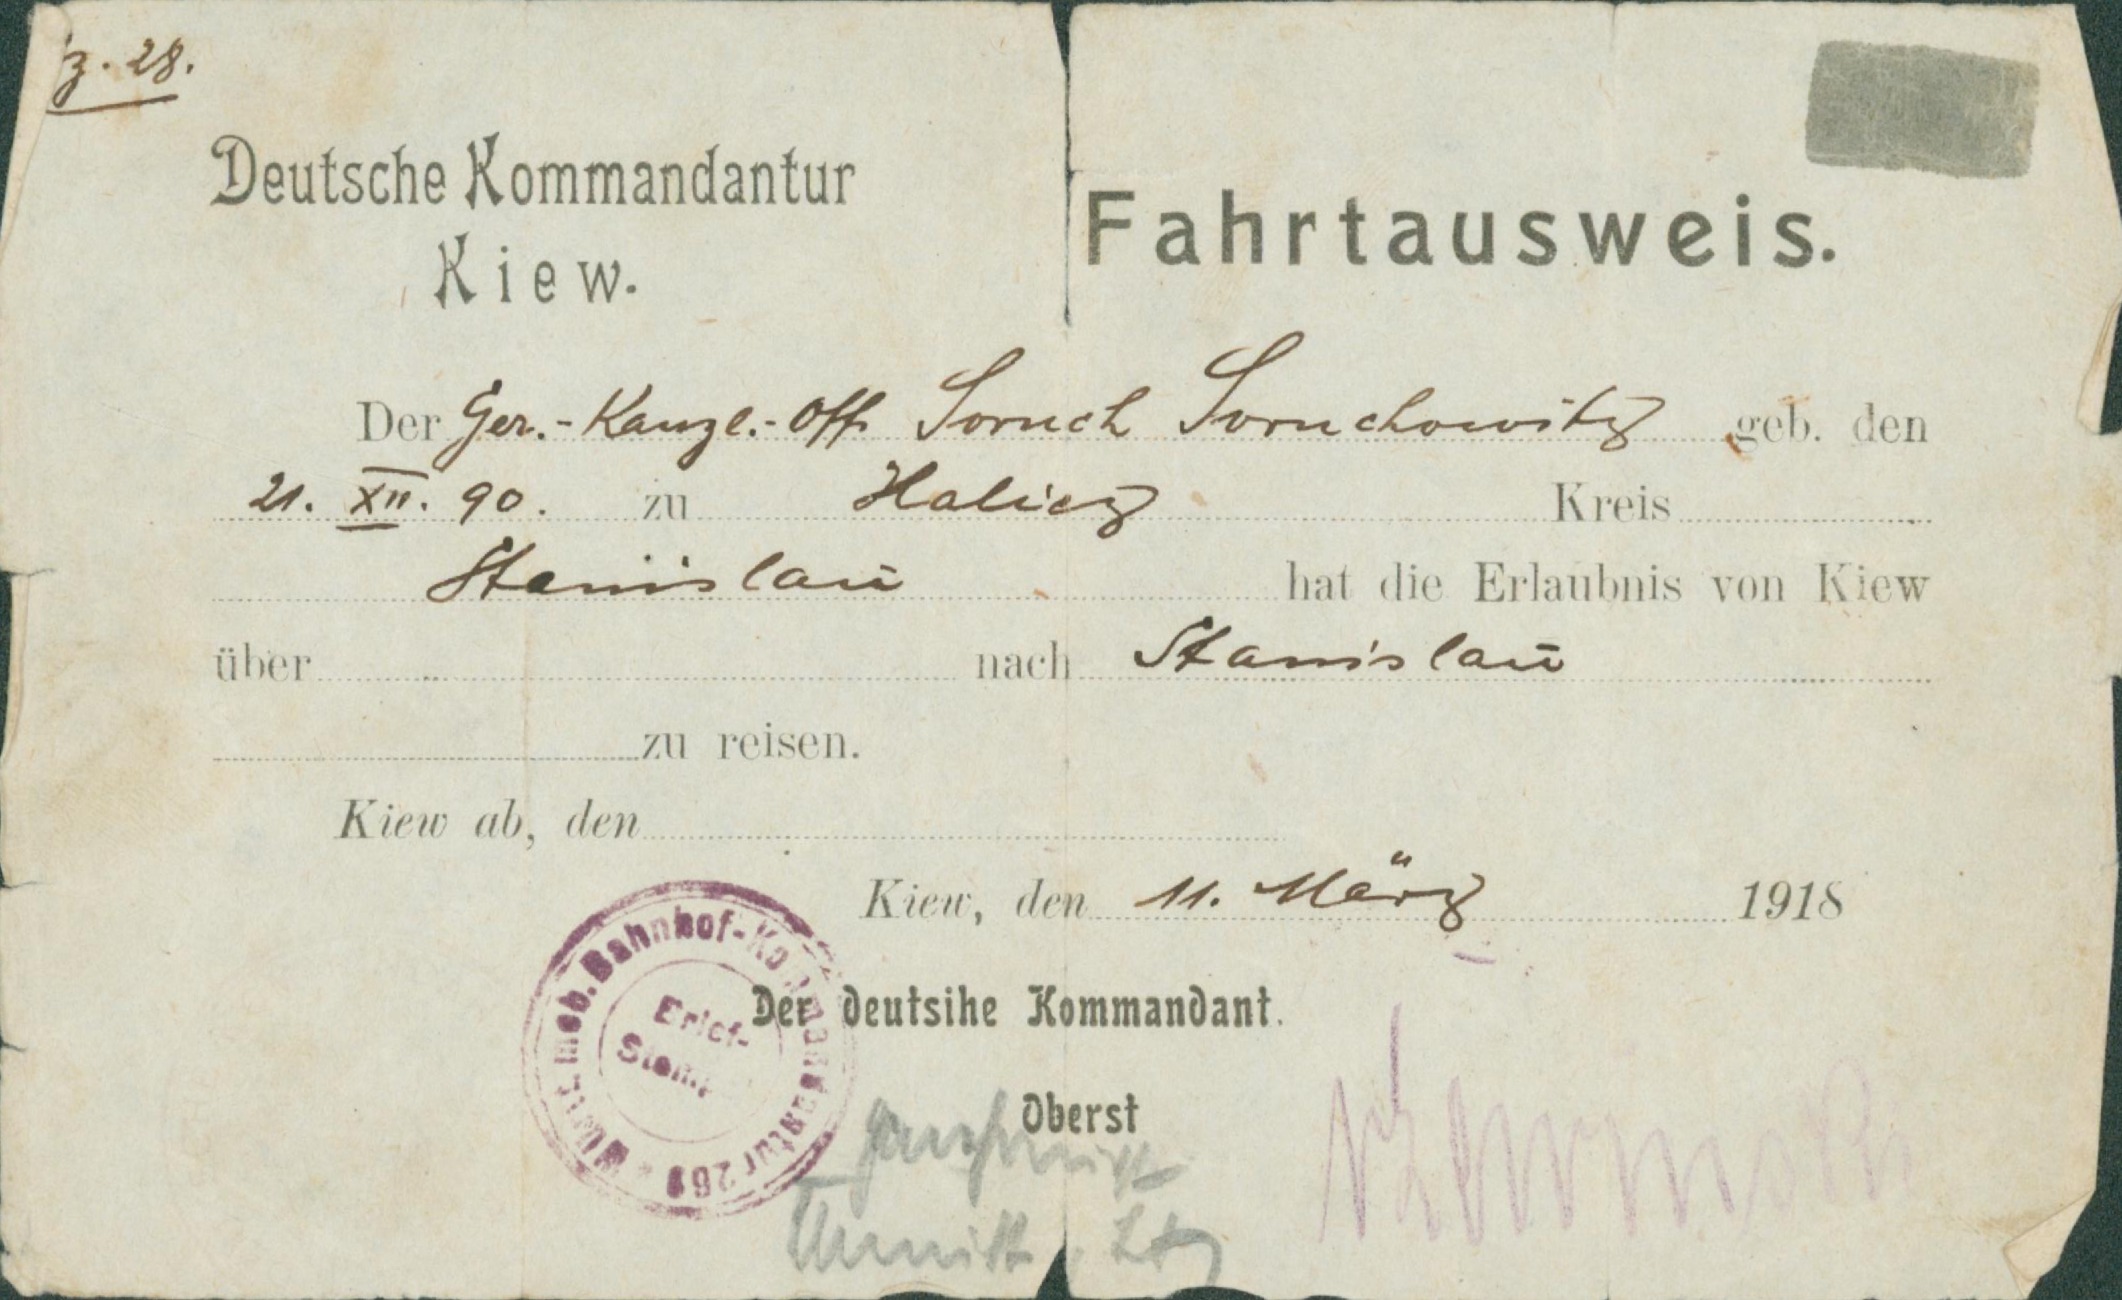 z. 28.
Deutsche Kommandantur
Kiew.
Fahrtausweis.
Der Ger.-Kanzl.-Off. Soruch Soruchowitz geb. den
21. XII. 90. zu Halicz Kreis
Stanislau hat die Erlaubnis von Kiew
über nach Stanislau
zu reisen.
Kiew ab, den
Kiew, den 11. März 1918
mob. Bahnhof-Kommandantur 261
Brief-
Stemp
Der deutsihe Kommandant.
Oberst